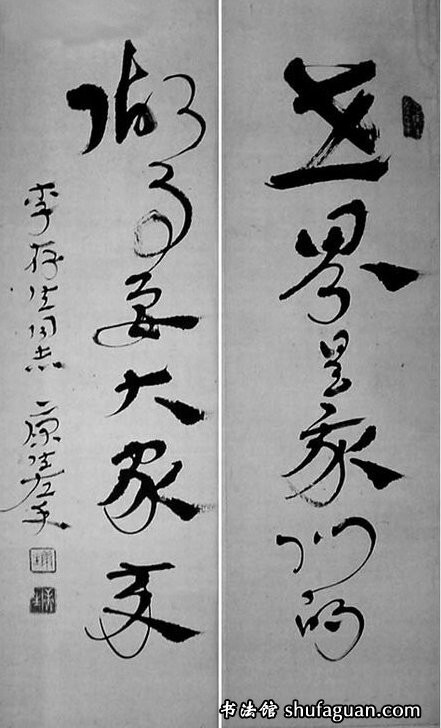 世界是我们的
做事要大家来
李存生同志 康生左手
书法馆 shufaguan.com